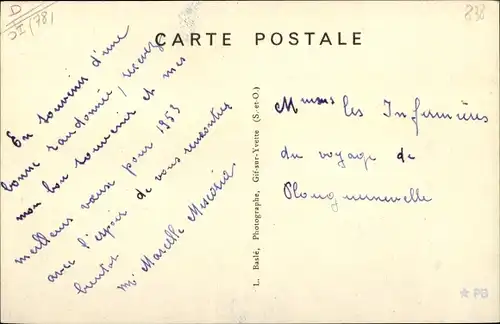 D
(78)
838
CARTE POSTALE
En souvenir d'une
bonne randonnée, recevez
mon bon souvenir et mes
meilleurs vœux pour 1953
avec l'espoir de vous rencontrer
bientot
M. Marcelle
L. Baslé, Photographe, Gif-sur-Yvette (S.-et-O.)
Mmmes les Infirmières
du voyage de
Plouguernevelle
PG